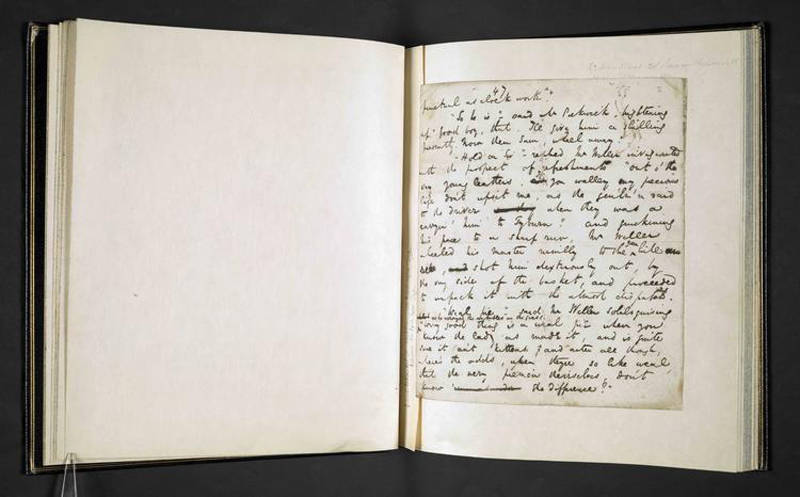 47
punctual as clock work."
"So he is" said Mr Pickwick, brightening
up "good boy, that. I'll give him a shilling
presently. Now then Sam, wheel away."
"Hold on Sir" replied Mr Weller invigorated
with the prospect of refreshments "out o' the
vay young leathers. If you walley my precious
life don't upset me, as the gen'l'm'n said
to the driver when they was a
carryin' him to Tyburn." and quickening
his pace to a sharp run, Mr Weller
wheeled his master nimbly to the green hill
shot him dexterously out, by
the very side of the basket, and proceeded
to unpack it with the utmost dispatch.
"Weal pie" said Mr Weller soliloquising
as he arranged the eatables on the grass.
"wery good thing is a weal pie when you
know the lady as made it, and is quite
sure it an't kittens; and arter all though,
where's the odds, when they're so like weal
that the wery piemen themselves don't
know the difference?"